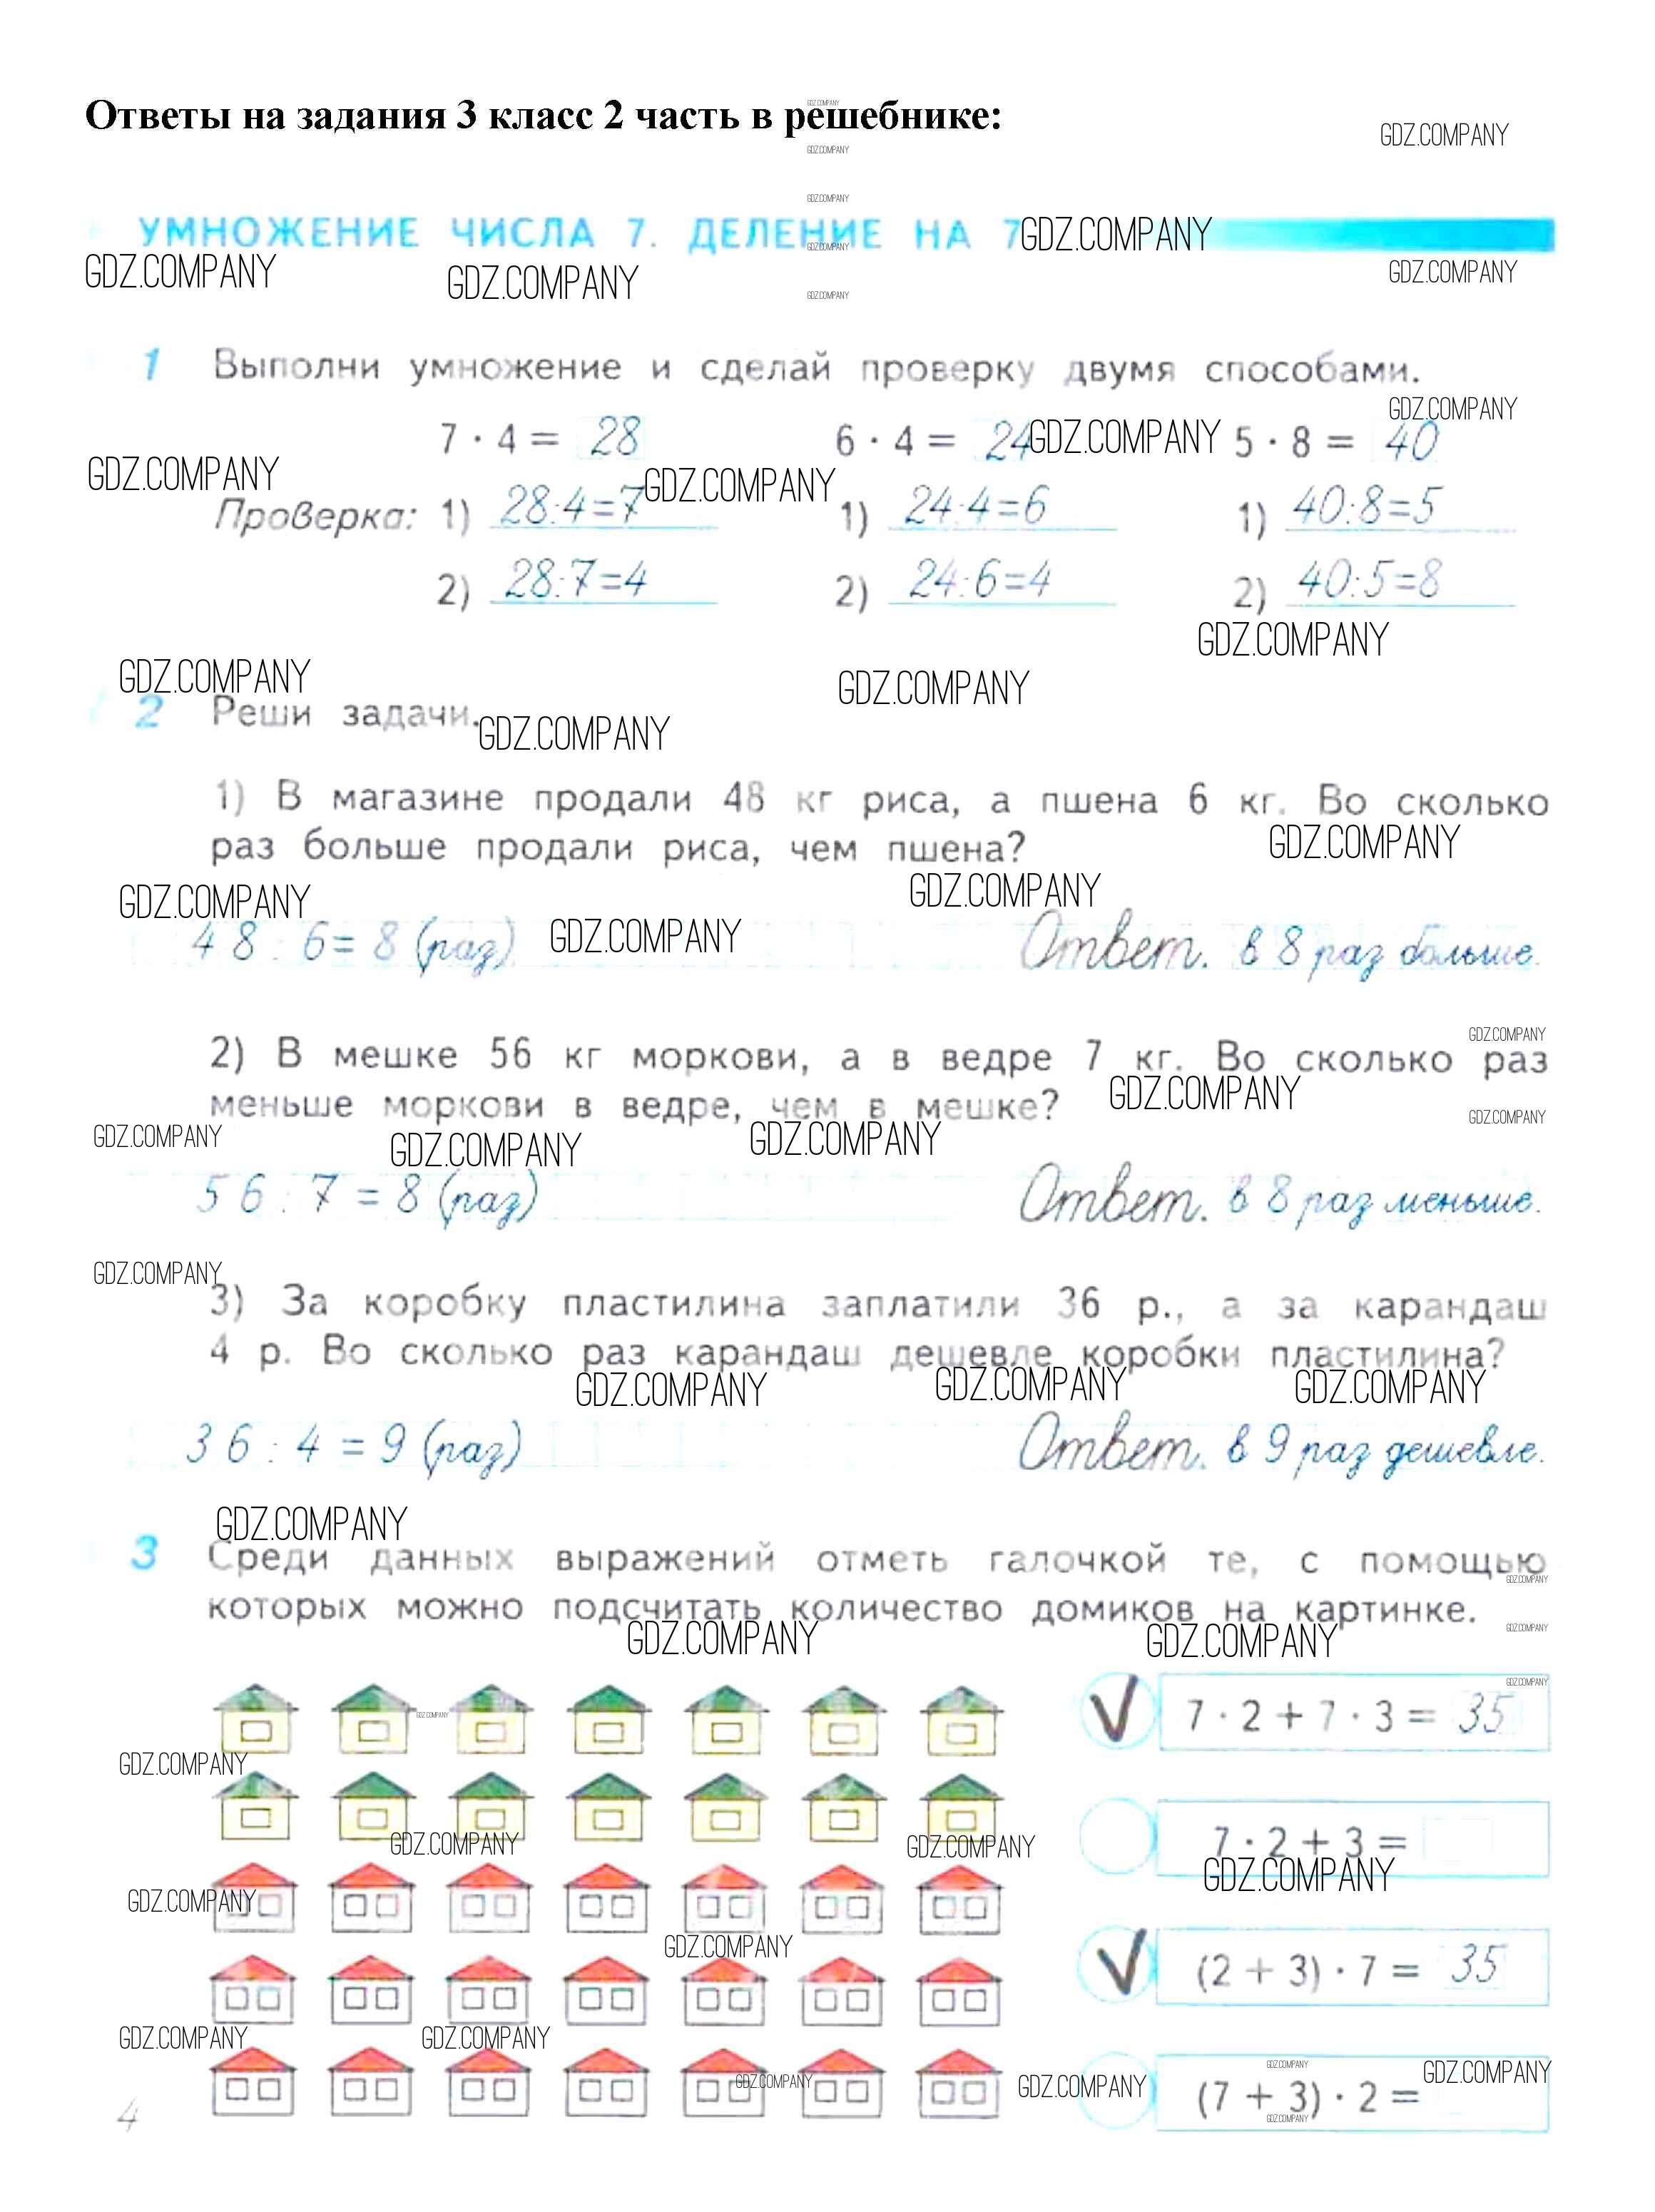 Ответы на задания 3 класс 2 часть в решебнике:
GDZ.COMPANY
GDZ.COMPANY
GDZ.COMPANY
GDZ.COMPANY
УМНОЖЕНИЕ ЧИСЛА 7. ДЕЛЕНИЕ НА 7 GDZ.COMPANY
GDZ.COMPANY
GDZ.COMPANY GDZ.COMPANY GDZ.COMPANY
GDZ.COMPANY
1 Выполни умножение и сделай проверку двумя способами.
GDZ.COMPANY
7 · 4 = 28 6 · 4 = 24 GDZ.COMPANY 5 · 8 = 40
GDZ.COMPANY GDZ.COMPANY
Проверка: 1) 28:4=7 1) 24:4=6 1) 40:8=5
2) 28:7=4 2) 24:6=4 2) 40:5=8
GDZ.COMPANY
GDZ.COMPANY GDZ.COMPANY
2 Реши задачи. GDZ.COMPANY
1) В магазине продали 48 кг риса, а пшена 6 кг. Во сколько
раз больше продали риса, чем пшена? GDZ.COMPANY
GDZ.COMPANY GDZ.COMPANY
48 : 6 = 8 (раз) GDZ.COMPANY Ответ. в 8 раз больше.
GDZ.COMPANY
2) В мешке 56 кг моркови, а в ведре 7 кг. Во сколько раз
меньше моркови в ведре, чем в мешке? GDZ.COMPANY GDZ.COMPANY
GDZ.COMPANY GDZ.COMPANY GDZ.COMPANY
56 : 7 = 8 (раз) Ответ. в 8 раз меньше.
GDZ.COMPANY
3) За коробку пластилина заплатили 36 р., а за карандаш
4 р. Во сколько раз карандаш дешевле коробки пластилина?
GDZ.COMPANY GDZ.COMPANY GDZ.COMPANY
36 : 4 = 9 (раз) Ответ. в 9 раз дешевле.
GDZ.COMPANY
3 Среди данных выражений отметь галочкой те, с помощью
GDZ.COMPANY
которых можно подсчитать количество домиков на картинке.
GDZ.COMPANY GDZ.COMPANY GDZ.COMPANY
GDZ.COMPANY
7 · 2 + 7 · 3 = 35
GDZ.COMPANY
GDZ.COMPANY
7 · 2 + 3 =
GDZ.COMPANY GDZ.COMPANY GDZ.COMPANY
GDZ.COMPANY
GDZ.COMPANY
(2 + 3) · 7 = 35
GDZ.COMPANY GDZ.COMPANY
GDZ.COMPANY
GDZ.COMPANY GDZ.COMPANY GDZ.COMPANY
(7 + 3) · 2 =
GDZ.COMPANY
4